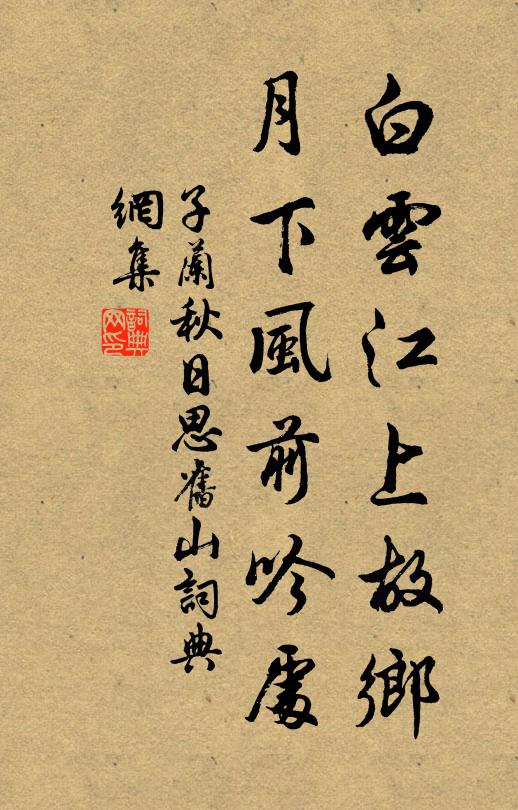 白雲江上故鄉
月下風前吟處
子蘭秋日思舊山詞典
網集
詞典網印